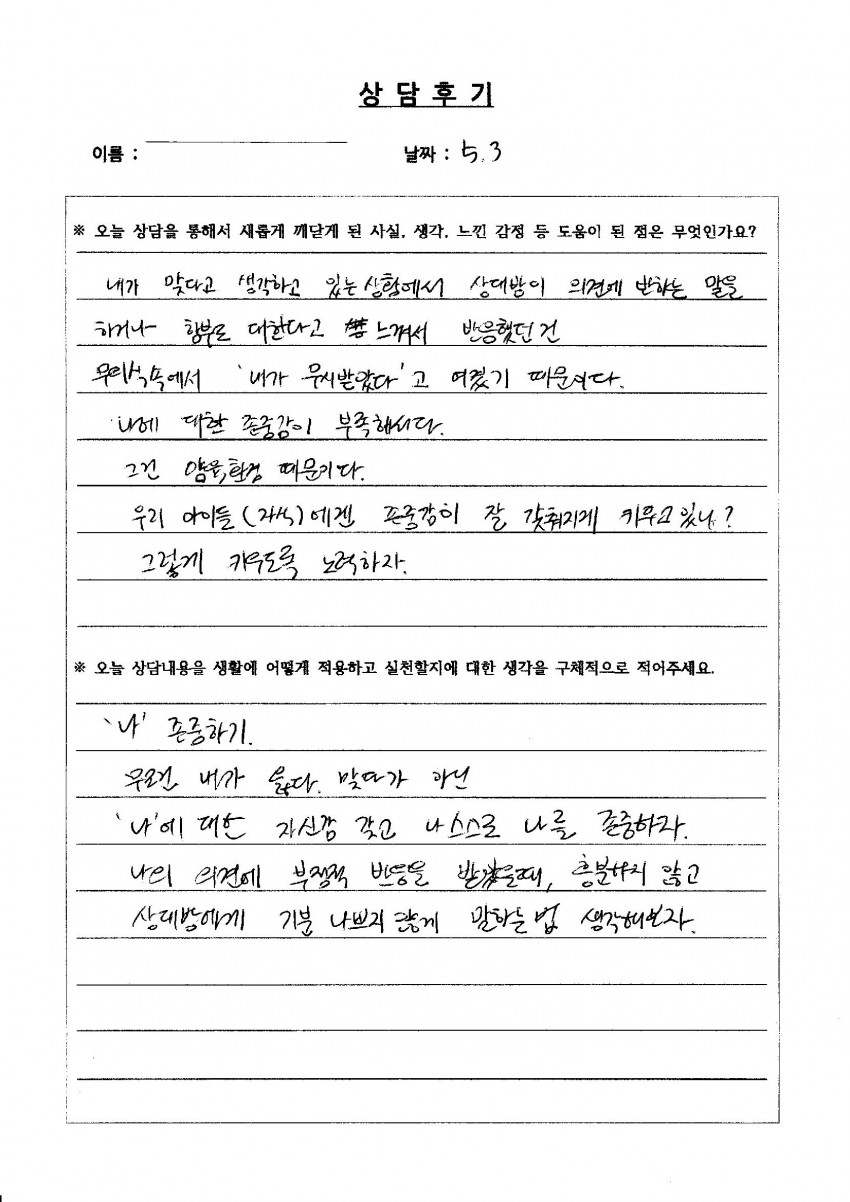 상 담 후 기
이름 :
날짜 : 5. 3
※ 오늘 상담을 통해서 새롭게 깨닫게 된 사실, 생각, 느낀 감정 등 도움이 된 점은 무엇인가요?
내가 맞다고 생각하고 있는 상황에서 상대방이 의견에 반하는 말을
하거나 함부로 대한다고 느껴서 반응했던 건
무의식속에서 '내가 무시받았다'고 여겼기 때문이다.
나에 대한 존중감이 부족해서다.
그건 양육환경 때문이다.
우리 아이들(자식)에겐 존중감이 잘 갖춰지게 키우고 있나?
그렇게 키우도록 노력하자.
※ 오늘 상담내용을 생활에 어떻게 적용하고 실천할지에 대한 생각을 구체적으로 적어주세요.
'나' 존중하기.
무조건 내가 옳다. 맞다가 아닌
'나'에 대한 자신감 갖고 나 스스로 나를 존중하자.
나의 의견에 부정적 반응을 받았을때, 흥분하지 않고
상대방에게 기분 나쁘지 않게 말하는 법 생각해보자.